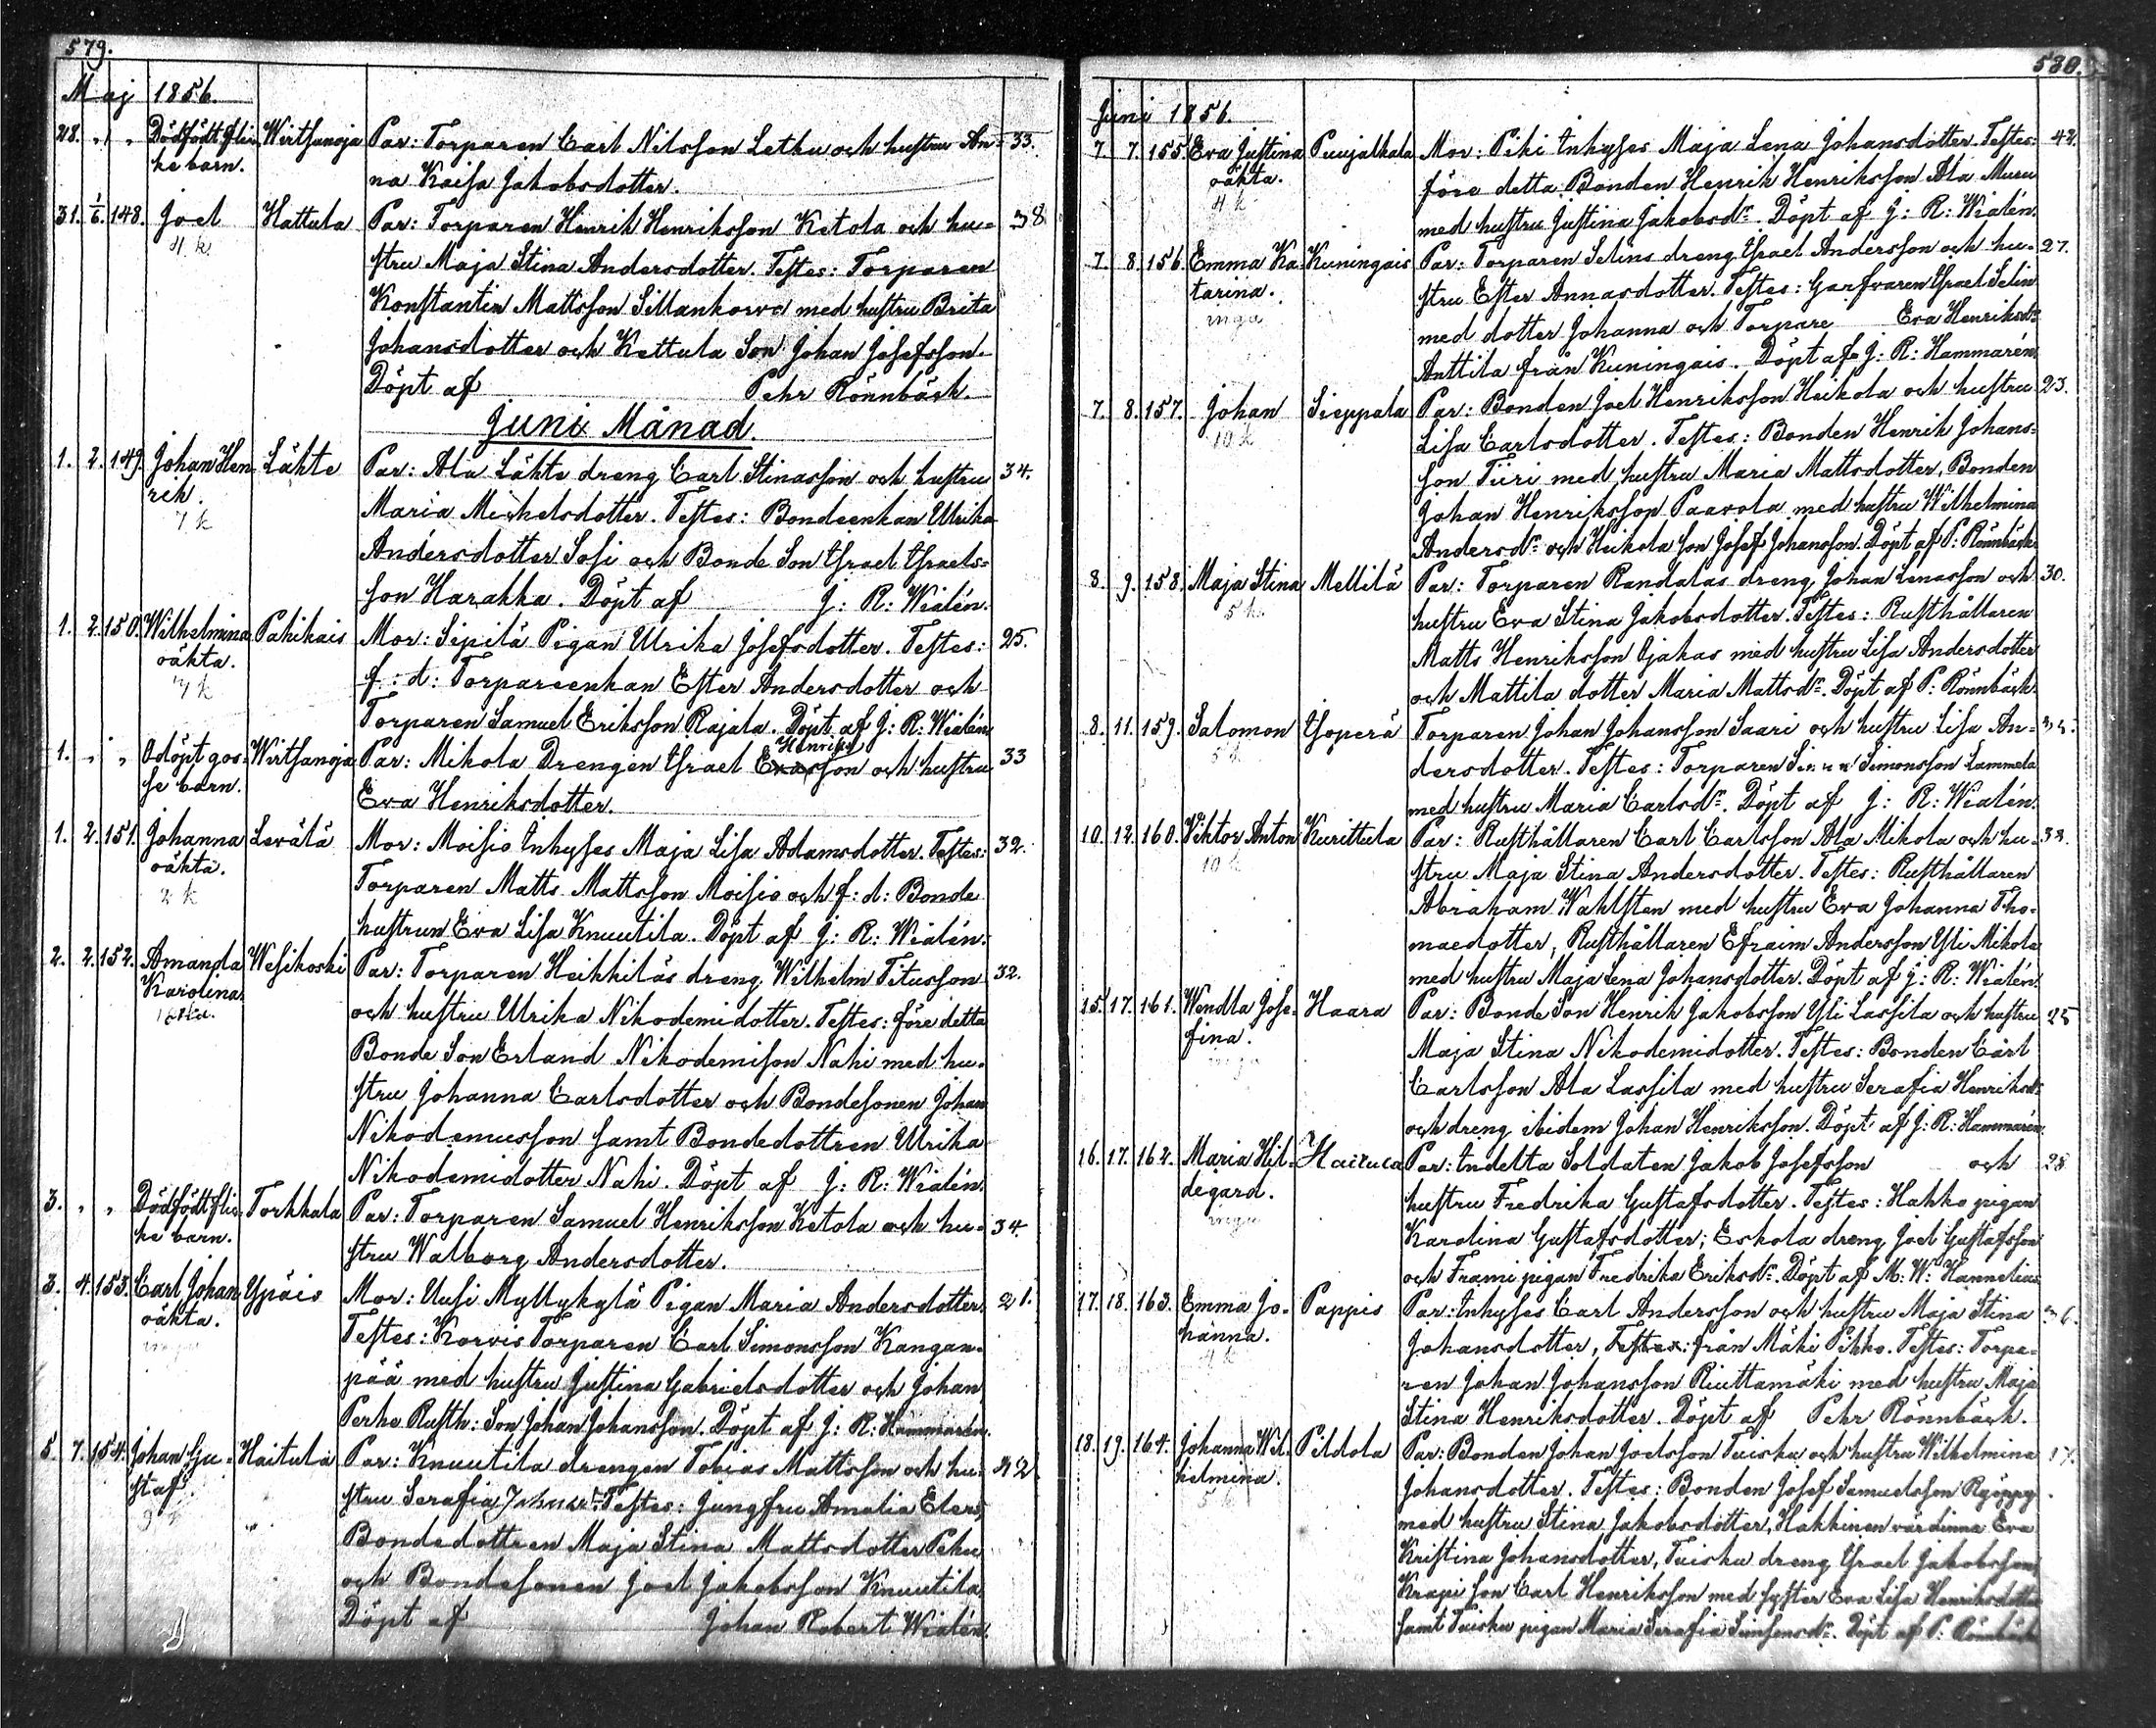 579.
Maj 1856.
28. " " Dödfödt flic- Wirtsanoja Par: Torparen Carl Nilsson Letku och hustru An- 33.
ke barn. na Kaisa Jakobsdotter.
31. 1/6. 148. Joel Hattula Par: Torparen Henrik Henriksson Ketola och hu- 38
4 k stru Maja Stina Andersdotter. Testes: Torparen
Konstantin Mattsson Sillankorva med hustru Brita
Johansdotter och Kettula Son Johan Josefsson.
Döpt af Pehr Rönnbäck.
Juni Månad.
1. 2. 149. Johan Hen Lähte Par: Ala Lähte dreng Carl Stinasson och hustru 34.
rik. Maria Michelsdotter. Testes: Bondeenkan Ulrika
7 k Andersdotter Sosi och Bonde Son Israel Israels-
son Harakka. Döpt af J: R: Wialén.
1. 2. 150. Wilhelmina Pahikais Mor: Sipilä Pigan Ulrika Josefsdotter. Testes: 25.
oäkta. f: d: Torpareenkan Ester Andersdotter och
7 k Torparen Samuel Eriksson Rajala. Döpt af J: R: Wialén.
Henriks
1. " " Odöpt gos- Wirtsanoja Par: Mikola Drengen Israel Evasson och hustru 33
se barn. Eva Henriksdotter.
1. 2. 151. Johanna Levälä Mor: Moisio Inhyses Maja Lisa Adamsdotter. Testes: 32.
oäkta. Torparen Matts Mattsson Moisio och f: d: Bonde
2 k hustrun Eva Lisa Knuutila. Döpt af J: R: Wialén.
2. 2. 152. Amanda Wesikoski Par: Torparen Heikkiläs dreng Wilhelm Titusson 32.
Karolina och hustru Ulrika Nikodemidotter. Testes: före detta
Bonde Son Erland Nikodemison Nahi med hu-
stru Johanna Carlsdotter och Bondesonen Johan
Nikodemusson samt Bondedottren Ulrika
Nikodemidotter Nahi. Döpt af J: R: Wialén.
3. " " Dödfödt flic- Torkkala Par: Torparen Samuel Henriksson Ketola och hu- 34.
ke barn. stru Walborg Andersdotter.
3. 4. 153. Carl Johan Ypäis Mor: Uusi Myllykylä Pigan Maria Andersdotter. 21.
oäkta. Testes: Korvis Torparen Carl Simonsson Kangan-
inga pää med hustru Justina Gabrielsdotter och Johan
Perho Rusth: Son Johan Johansson. Döpt af J: R: Hammarén.
5. 7. 154. Johan Gu- Haitula Par: Knuutila drengen Tobias Mattsson och hu- 42
staf stru Serafia Testes: Jungfru Amalia Elers,
Bondedottren Maja Stina Mattsdotter Peku
och Bondesonen Joel Jakobsson Knuutila.
Döpt af Johan Robert Wialén.
580.
Juni 1856.
7. 7. 155. Eva Justina Puujalkala Mor: Piki Inhyses Maja Lena Johansdotter. Testes: 42.
oäkta. före detta Bonden Henrik Henriksson Ala Muru
4 k med hustru Justina Jakobsdr. Döpt af J: R: Wialén.
7. 8. 156. Emma Ka- Kuningais Par: Torparen Selins dreng Israel Andersson och hu- 27.
tarina. stru Ester Annasdotter. Testes: Garfvaren Israel Selin
inga med dotter Johanna och Torpare Eva Henriksdr
Anttila från Kuningais. Döpt af J: R: Hammarén.
7. 8. 157. Johan Sieppala Par: Bonden Joel Henriksson Heikola och hustru 23.
10 k Lisa Carlsdotter. Testes: Bonden Henrik Johans-
son Tiiri med hustru Maria Mattsdotter, Bonden
Johan Henriksson Paavola med hustru Wilhelmina
Andersdr och Heikola Son Josef Johansson. Döpt af P: Rönnbäck.
8. 9. 158. Maja Stina Mellilä Par: Torparen Randalas dreng Johan Lenasson och 30.
5 k hustru Eva Stina Jakobsdotter. Testes: Rusthållaren
Matts Henriksson Ojakas med hustru Lisa Andersdotter
och Mattila dotter Maria Mattsdr. Döpt af P: Rönnbäck.
8. 11. 159. Salomon Isoperä Torparen Johan Johansson Saari och hustru Lisa An-
dersdotter. Testes: Torparen Simon Simonsson Lammela
med hustru Maria Carlsdr. Döpt af J: R: Wialén.
10. 12. 160. Wiktor Anton Kurittula Par: Rusthållaren Carl Carlsson Ala Mikola och hu- 38.
10 k stru Maja Stina Andersdotter. Testes: Rusthållaren
Abraham Wahlsten med hustru Eva Johanna Tho-
maedotter, Rusthållaren Efraim Andersson Yli Mikola
med hustru Maja Lena Johansdotter. Döpt af J: R: Wialén.
15. 17. 161. Wendla Jose- Haara Par: Bonde Son Henrik Jakobsson Yli Lassila och hustru 25
fina. Maja Stina Nikodemidotter. Testes: Bonden Carl
inga Carlsson Ala Lassila med hustru Serafia Henriksdr
och dreng ibidem Johan Henriksson. Döpt af J: R: Hammarén.
16. 17. 162. Maria Hil- Haitula Par: Indelta Soldaten Jakob Josefsson och 28.
degard. hustru Fredrika Gustafsdotter. Testes: Hakko pigan
inga Karolina Gustafsdotter, Eskola dreng Joel Gustafsson
och Frami pigan Fredrika Eriksdr. Döpt af M: W: Hannelius.
17. 18. 163. Emma Jo- Pappis Par: Inhyses Carl Andersson och hustru Maja Stina 36.
hanna. Johansdotter, Testes: från Mäki Pihko. Testes: Torpa-
4 k ren Johan Johansson Riuttamäki med hustru Maja
Stina Henriksdotter. Döpt af Pehr Rönnbäck.
18. 19. 164. Johanna Wil- Pildola Par: Bonden Johan Joelsson Tuisku och hustru Wilhelmina
helmina. Johansdotter. Testes: Bonden Josef Samuelsson Ryöppy
med hustru Stina Jakobsdotter, Hakkinen värdinna Eva
Kristina Johansdotter, Tuisku dreng Israel Jakobsson,
Krapi Son Carl Henriksson med syster Eva Lisa Henriksdotter
samt Tuisku pigan Maria Serafia Simsonsdr. Döpt af P: Rönnbäck